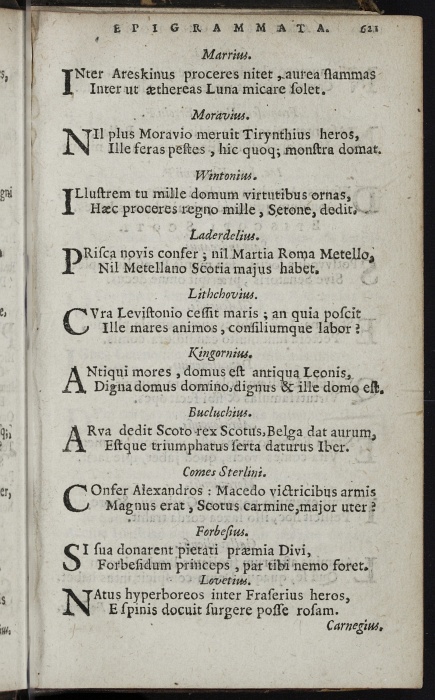 EPIGRAMMATA. 621
Marrius.
INter Areskinus proceres nitet, aurea flammas
Inter ut æthereas Luna micare ſolet.
Moravius.
NIl plus Moravio meruit Tirynthius heros,
Ille feras peſtes, hic quoq; monſtra domat.
Wintonius.
ILluſtrem tu mille domum virtutibus ornas,
Hæc proceres regno mille, Setone, dedit.
Laderdelius.
PRiſca novis confer; nil Martia Roma Metello,
Nil Metellano Scotia majus habet.
Lithchovius.
CVra Leviſtonio ceſſit maris; an quia poſcit
Ille mares animos, conſiliumque labor?
Kingornius.
ANtiqui mores, domus eſt antiqua Leonis,
Digna domus domino, dignus & ille domo eſt.
Bucluchius.
ARva dedit Scoto rex Scotus, Belga dat aurum,
Eſtque triumphatus ſerta daturus Iber.
Comes Sterlini.
COnfer Alexandros: Macedo victricibus armis
Magnus erat, Scotus carmine, major uter?
Forbeſius.
SI ſua donarent pietati præmia Divi,
Forbeſidum princeps, par tibi nemo foret.
Lovetius.
NAtus hyperboreos inter Fraſerius heros,
E ſpinis docuit ſurgere poſſe roſam.
Carnegius.